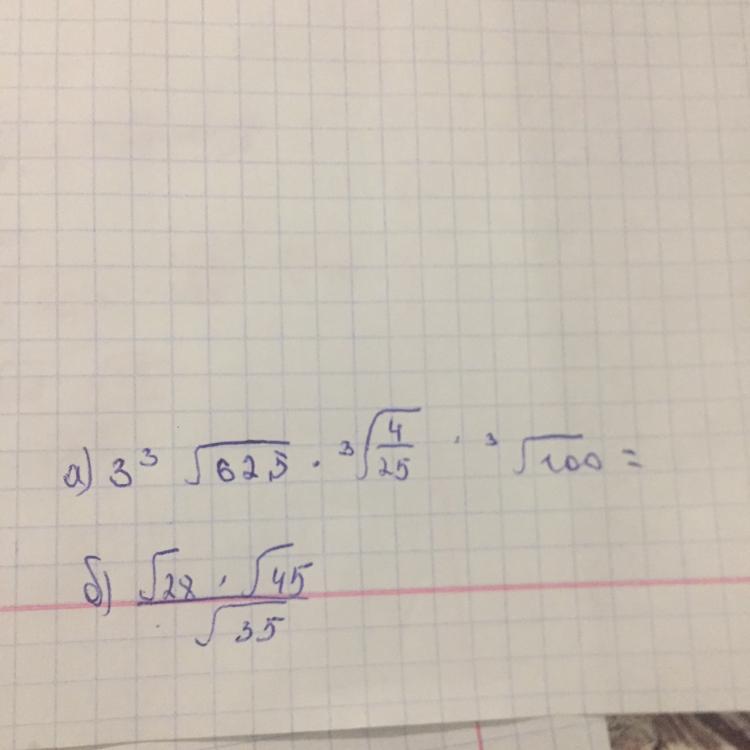 а) 3 ³√625 · ³√(4/25) · ³√100 =
б) (√28 · √45)/√35